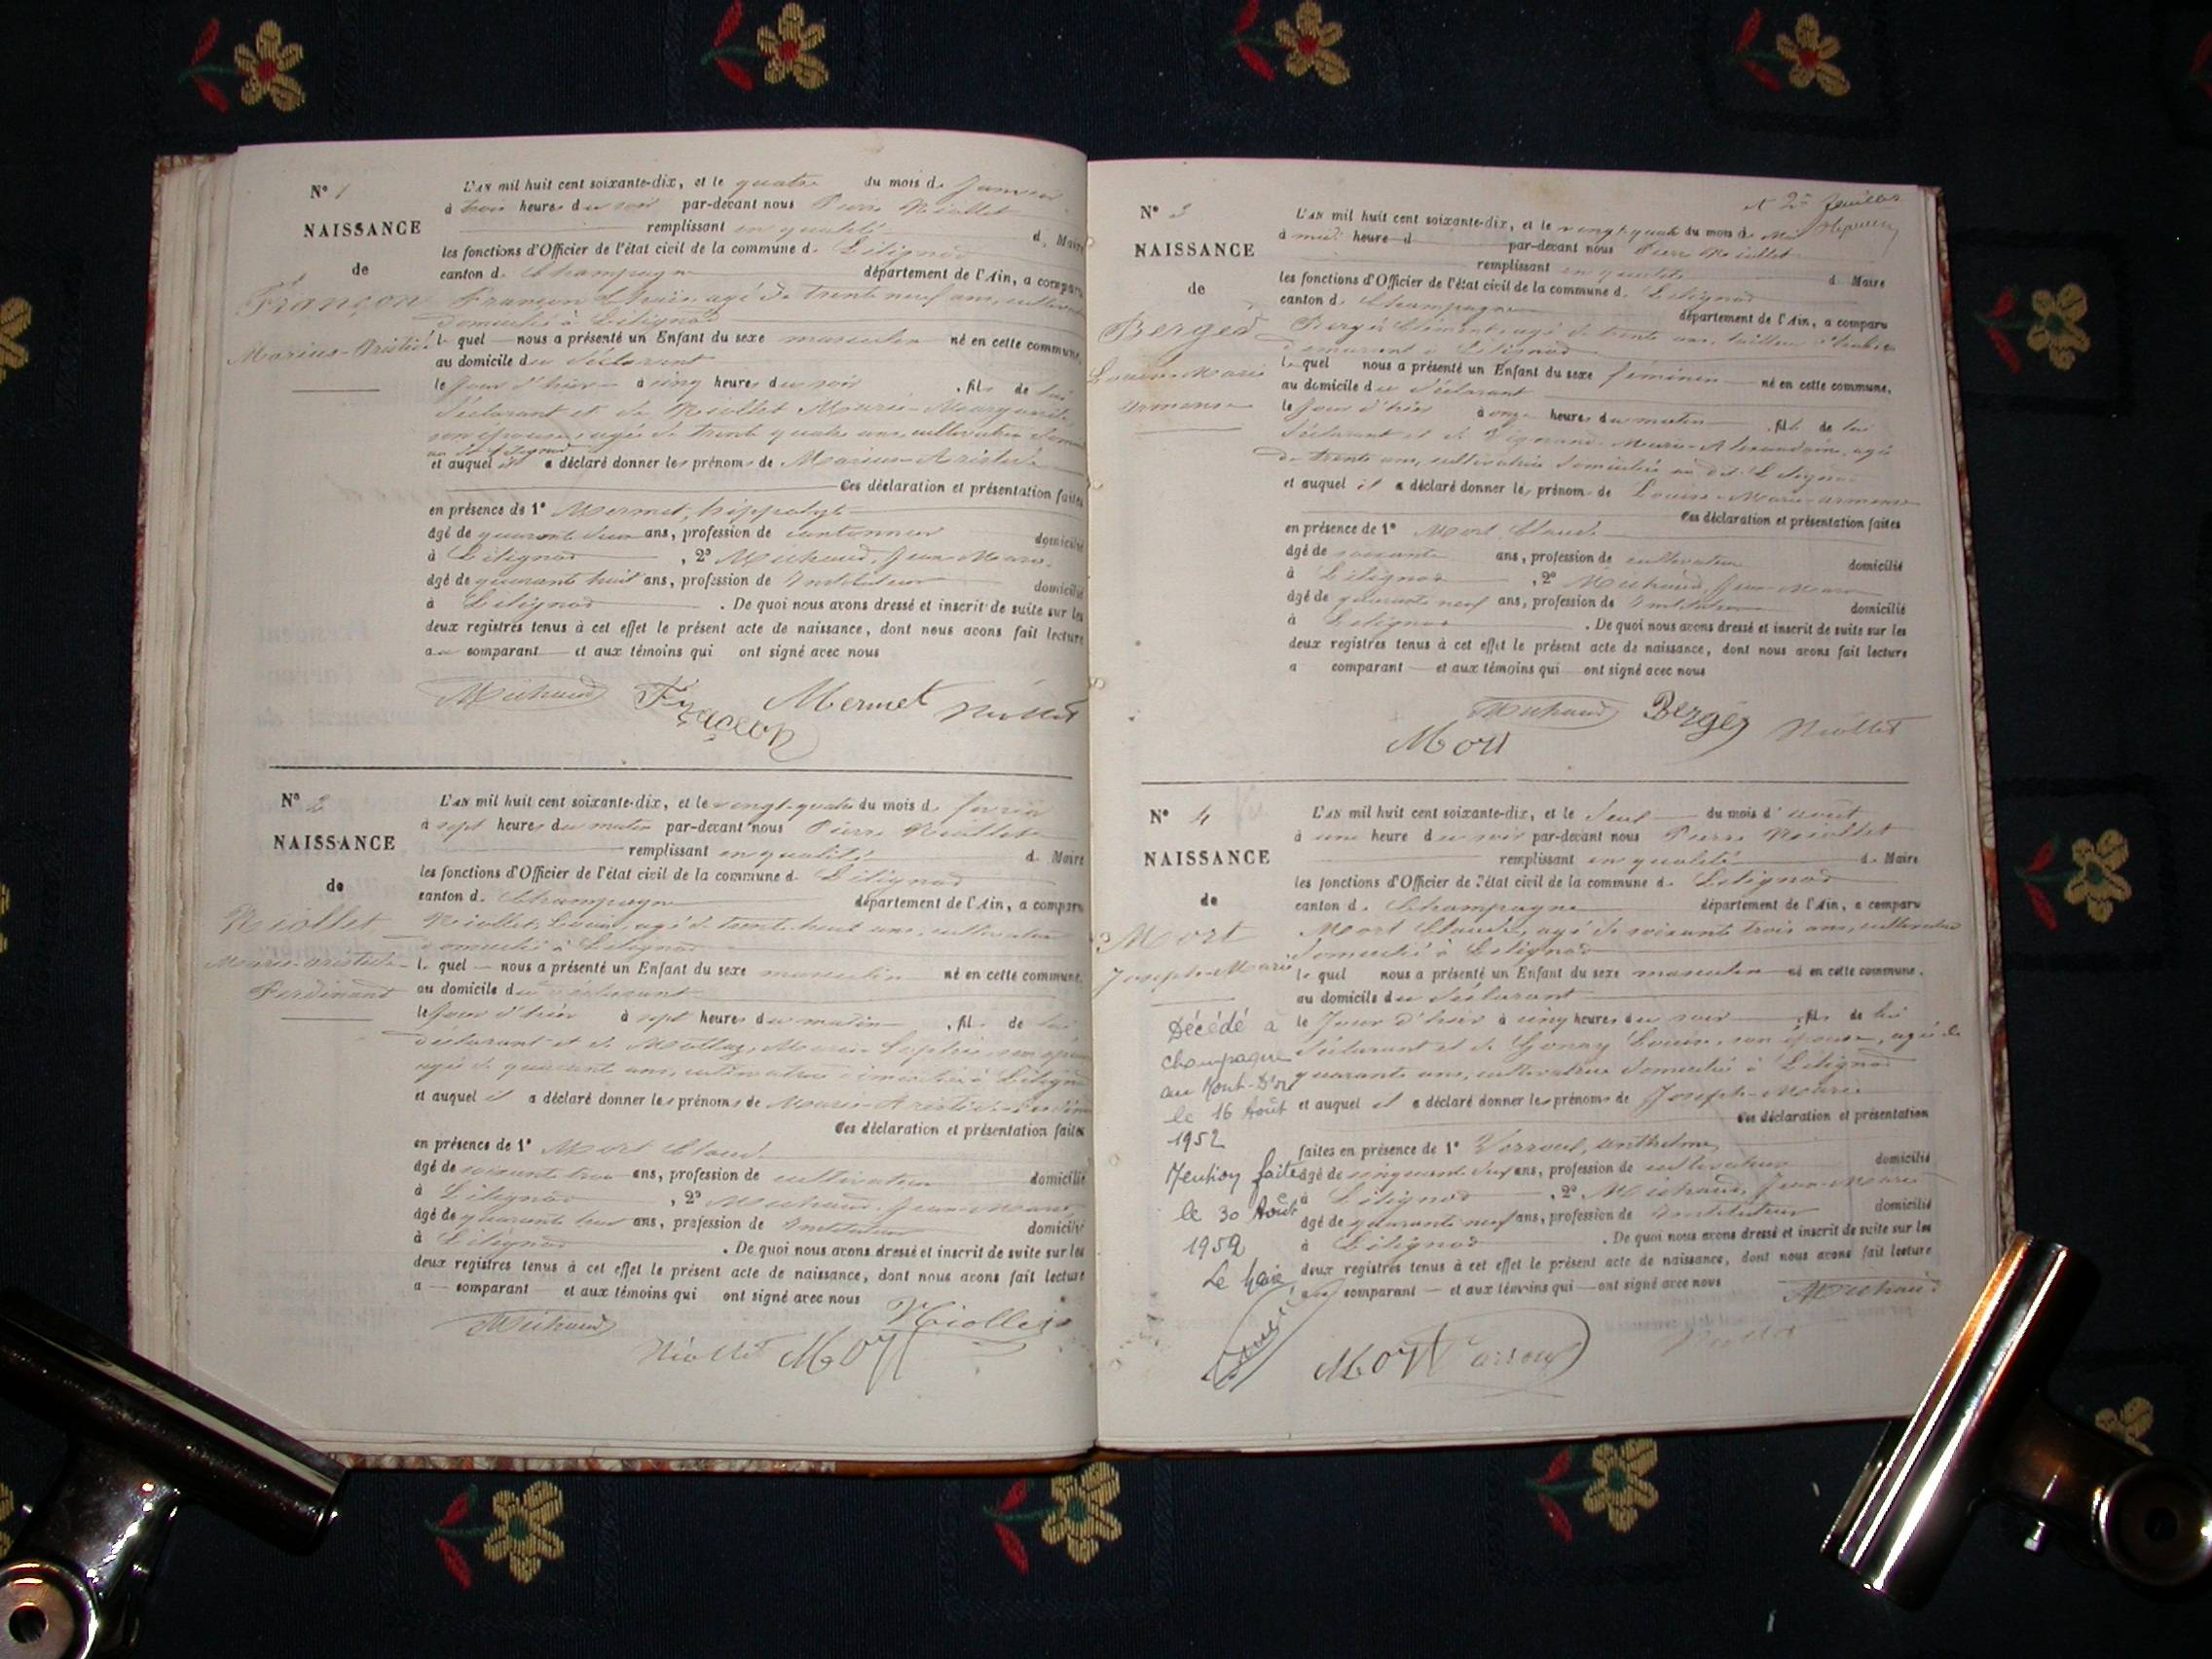 N° 1
NAISSANCE
de
Françon
Marius-Aristide
L'AN mil huit cent soixante-dix, et le quatre du mois de Janvier
à trois heures du soir par-devant nous Pierre Niollet
remplissant en qualité de Maire
les fonctions d'Officier de l'état civil de la commune de Lilignod
canton de Champagne département de l'Ain, a comparu
Françon agé de trente neuf ans, cultivateur
domicilié à Lilignod
lequel nous a présenté un Enfant du sexe masculin né en cette commune,
au domicile du déclarant
le jour d'hier à cinq heures du soir, fils de lui
déclarant et de Niollet Marie-Marguerite
son épouse, agée de trente quatre ans, cultivatrice
au dit Lilignod
et auquel il a déclaré donner les prénoms de Marius-Aristide
Ces déclaration et présentation faites
en présence de 1° Mermet, hippolyte
âgé de quarante deux ans, profession de cantonnier domicilié
à Lilignod, 2° Michaud, Jean-Marie
âgé de quarante huit ans, profession de Instituteur domicilié
à Lilignod. De quoi nous avons dressé et inscrit de suite sur les
deux registres tenus à cet effet le présent acte de naissance, dont nous avons fait lecture
au comparant et aux témoins qui ont signé avec nous
Michaud Françon Mermet Niollet
N° 2
NAISSANCE
de
Niollet
Marie-Aristide
Ferdinand
L'AN mil huit cent soixante-dix, et le vingt-quatre du mois de février
à sept heures du matin par-devant nous Pierre Niollet
remplissant en qualité de Maire
les fonctions d'Officier de l'état civil de la commune de Lilignod
canton de Champagne département de l'Ain, a comparu
Niollet, Louis, agé de trente huit ans, cultivateur
domicilié à Lilignod
lequel nous a présenté un Enfant du sexe masculin né en cette commune,
au domicile du déclarant
le jour d'hier à sept heures du matin, fils de lui
déclarant et de Mottaz, Marie-Sophie son épouse
agée de quarante ans, cultivatrice domiciliée à Lilignod
et auquel il a déclaré donner les prénoms de Marie-Aristide-Ferdinand
Ces déclaration et présentation faites
en présence de 1° Mort Claude
âgé de soixante trois ans, profession de cultivateur domicilié
à Lilignod, 2° Michaud, Jean-Marie
âgé de quarante huit ans, profession de Instituteur domicilié
à Lilignod. De quoi nous avons dressé et inscrit de suite sur les
deux registres tenus à cet effet le présent acte de naissance, dont nous avons fait lecture
a comparant et aux témoins qui ont signé avec nous
Michaud Niollet Mort Niollet
et 2e feuillet
N° 3
NAISSANCE
de
Berger
Louise-Marie
L'AN mil huit cent soixante-dix, et le vingt-quatre du mois de Mai
à midi heure d par-devant nous Pierre Niollet
remplissant en qualité de Maire
les fonctions d'Officier de l'état civil de la commune de Lilignod
canton de Champagne département de l'Ain, a comparu
Berger Clément, agé de trente ans, tailleur d'habits
demeurant à Lilignod
lequel nous a présenté un Enfant du sexe féminin né en cette commune,
au domicile du déclarant
le jour d'hier à onze heures du matin, fille de lui
déclarant et de Marie-Alexandrine, agée
de trente ans, cultivatrice domiciliée au dit Lilignod
et auquel il a déclaré donner les prénom de Louise-Marie
Ces déclaration et présentation faites
en présence de 1° Mort Claude
âgé de soixante ans, profession de cultivateur domicilié
à Lilignod, 2° Michaud, Jean-Marie
âgé de quarante neuf ans, profession de Instituteur domicilié
à Lilignod. De quoi nous avons dressé et inscrit de suite sur les
deux registres tenus à cet effet le présent acte de naissance, dont nous avons fait lecture
a comparant et aux témoins qui ont signé avec nous
Michaud Berger Niollet
Mort
N° 4
NAISSANCE
de
Mort
Joseph-Marie
Décédé à
Champagne
au Mont-D'or
le 16 Août
1952
Mention faite
le 30 Août
1952
Le Maire
L'AN mil huit cent soixante-dix, et le deux du mois d'août
à une heure du soir par-devant nous Pierre Niollet
remplissant en qualité de Maire
les fonctions d'Officier de l'état civil de la commune de Lilignod
canton de Champagne département de l'Ain, a comparu
Mort Claude, agé de soixante trois ans, cultivateur
domicilié à Lilignod
lequel nous a présenté un Enfant du sexe masculin né en cette commune,
au domicile du déclarant
le jour d'hier à cinq heures du soir, fils de lui
déclarant et de Gonay Louise, son épouse, agée de
quarante ans, cultivatrice domiciliée à Lilignod
et auquel il a déclaré donner les prénoms de Joseph-Marie
Ces déclaration et présentation
faites en présence de 1° anthelme
âgé de cinquante ans, profession de cultivateur domicilié
à Lilignod, 2° Michaud, Jean-Marie
âgé de quarante neuf ans, profession de Instituteur domicilié
à Lilignod. De quoi nous avons dressé et inscrit de suite sur les
deux registres tenus à cet effet le présent acte de naissance, dont nous avons fait lecture
au comparant et aux témoins qui ont signé avec nous
Michaud
Mort Niollet